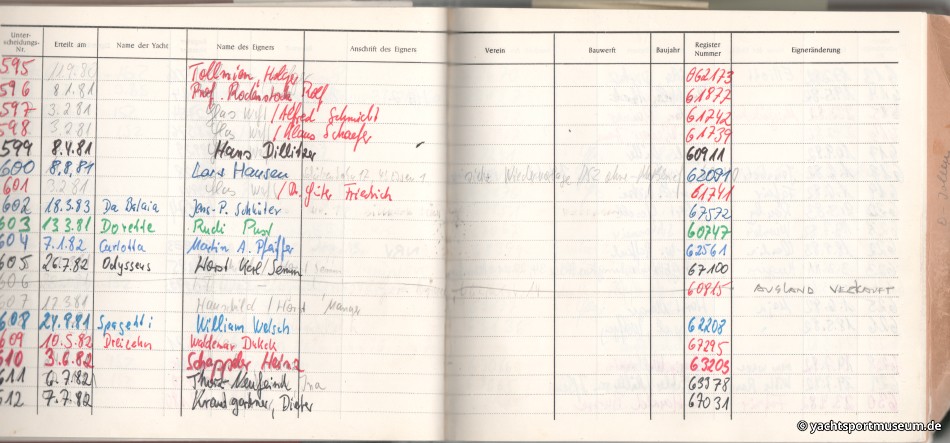 Unter-scheidungs-Nr. Erteilt am Name der Yacht Name des Eigners Anschrift des Eigners Verein Bauwerft Baujahr Register Nummer Eigneränderung
595 11.9.80 Tollmien, Holger 062173
596 8.1.81 Prof. Rodenstock Rolf 61872
597 3.2.81 / Alfred Schmidt 61742
598 3.2.81 / Klaus Schaefer 61739
599 8.4.81 Hans Dillitzer 60911
600 8.8.81 Lars Hansen siehe 62081
601 3.2.81 / Dr. Friedrich 61741
602 18.3.83 Da Balaia Jens-P. Schlüter 67572
603 13.3.81 Dorette Rudi Pust 60747
604 7.1.82 Carlotta Martin A. Pfeiffer 62561
605 26.7.82 Odysseus Horst 67100
606 60915 AUSLAND VERKAUFT
607 12.3.81 / Horst
608 24.9.81 Spagetti William Welsch 62208
609 10.5.82 Dreizehn Waldemar 67295
610 3.6.82 Heinz 63205
611 6.7.82 63378
612 7.7.82 Dieter 67031
© yachtsportmuseum.de